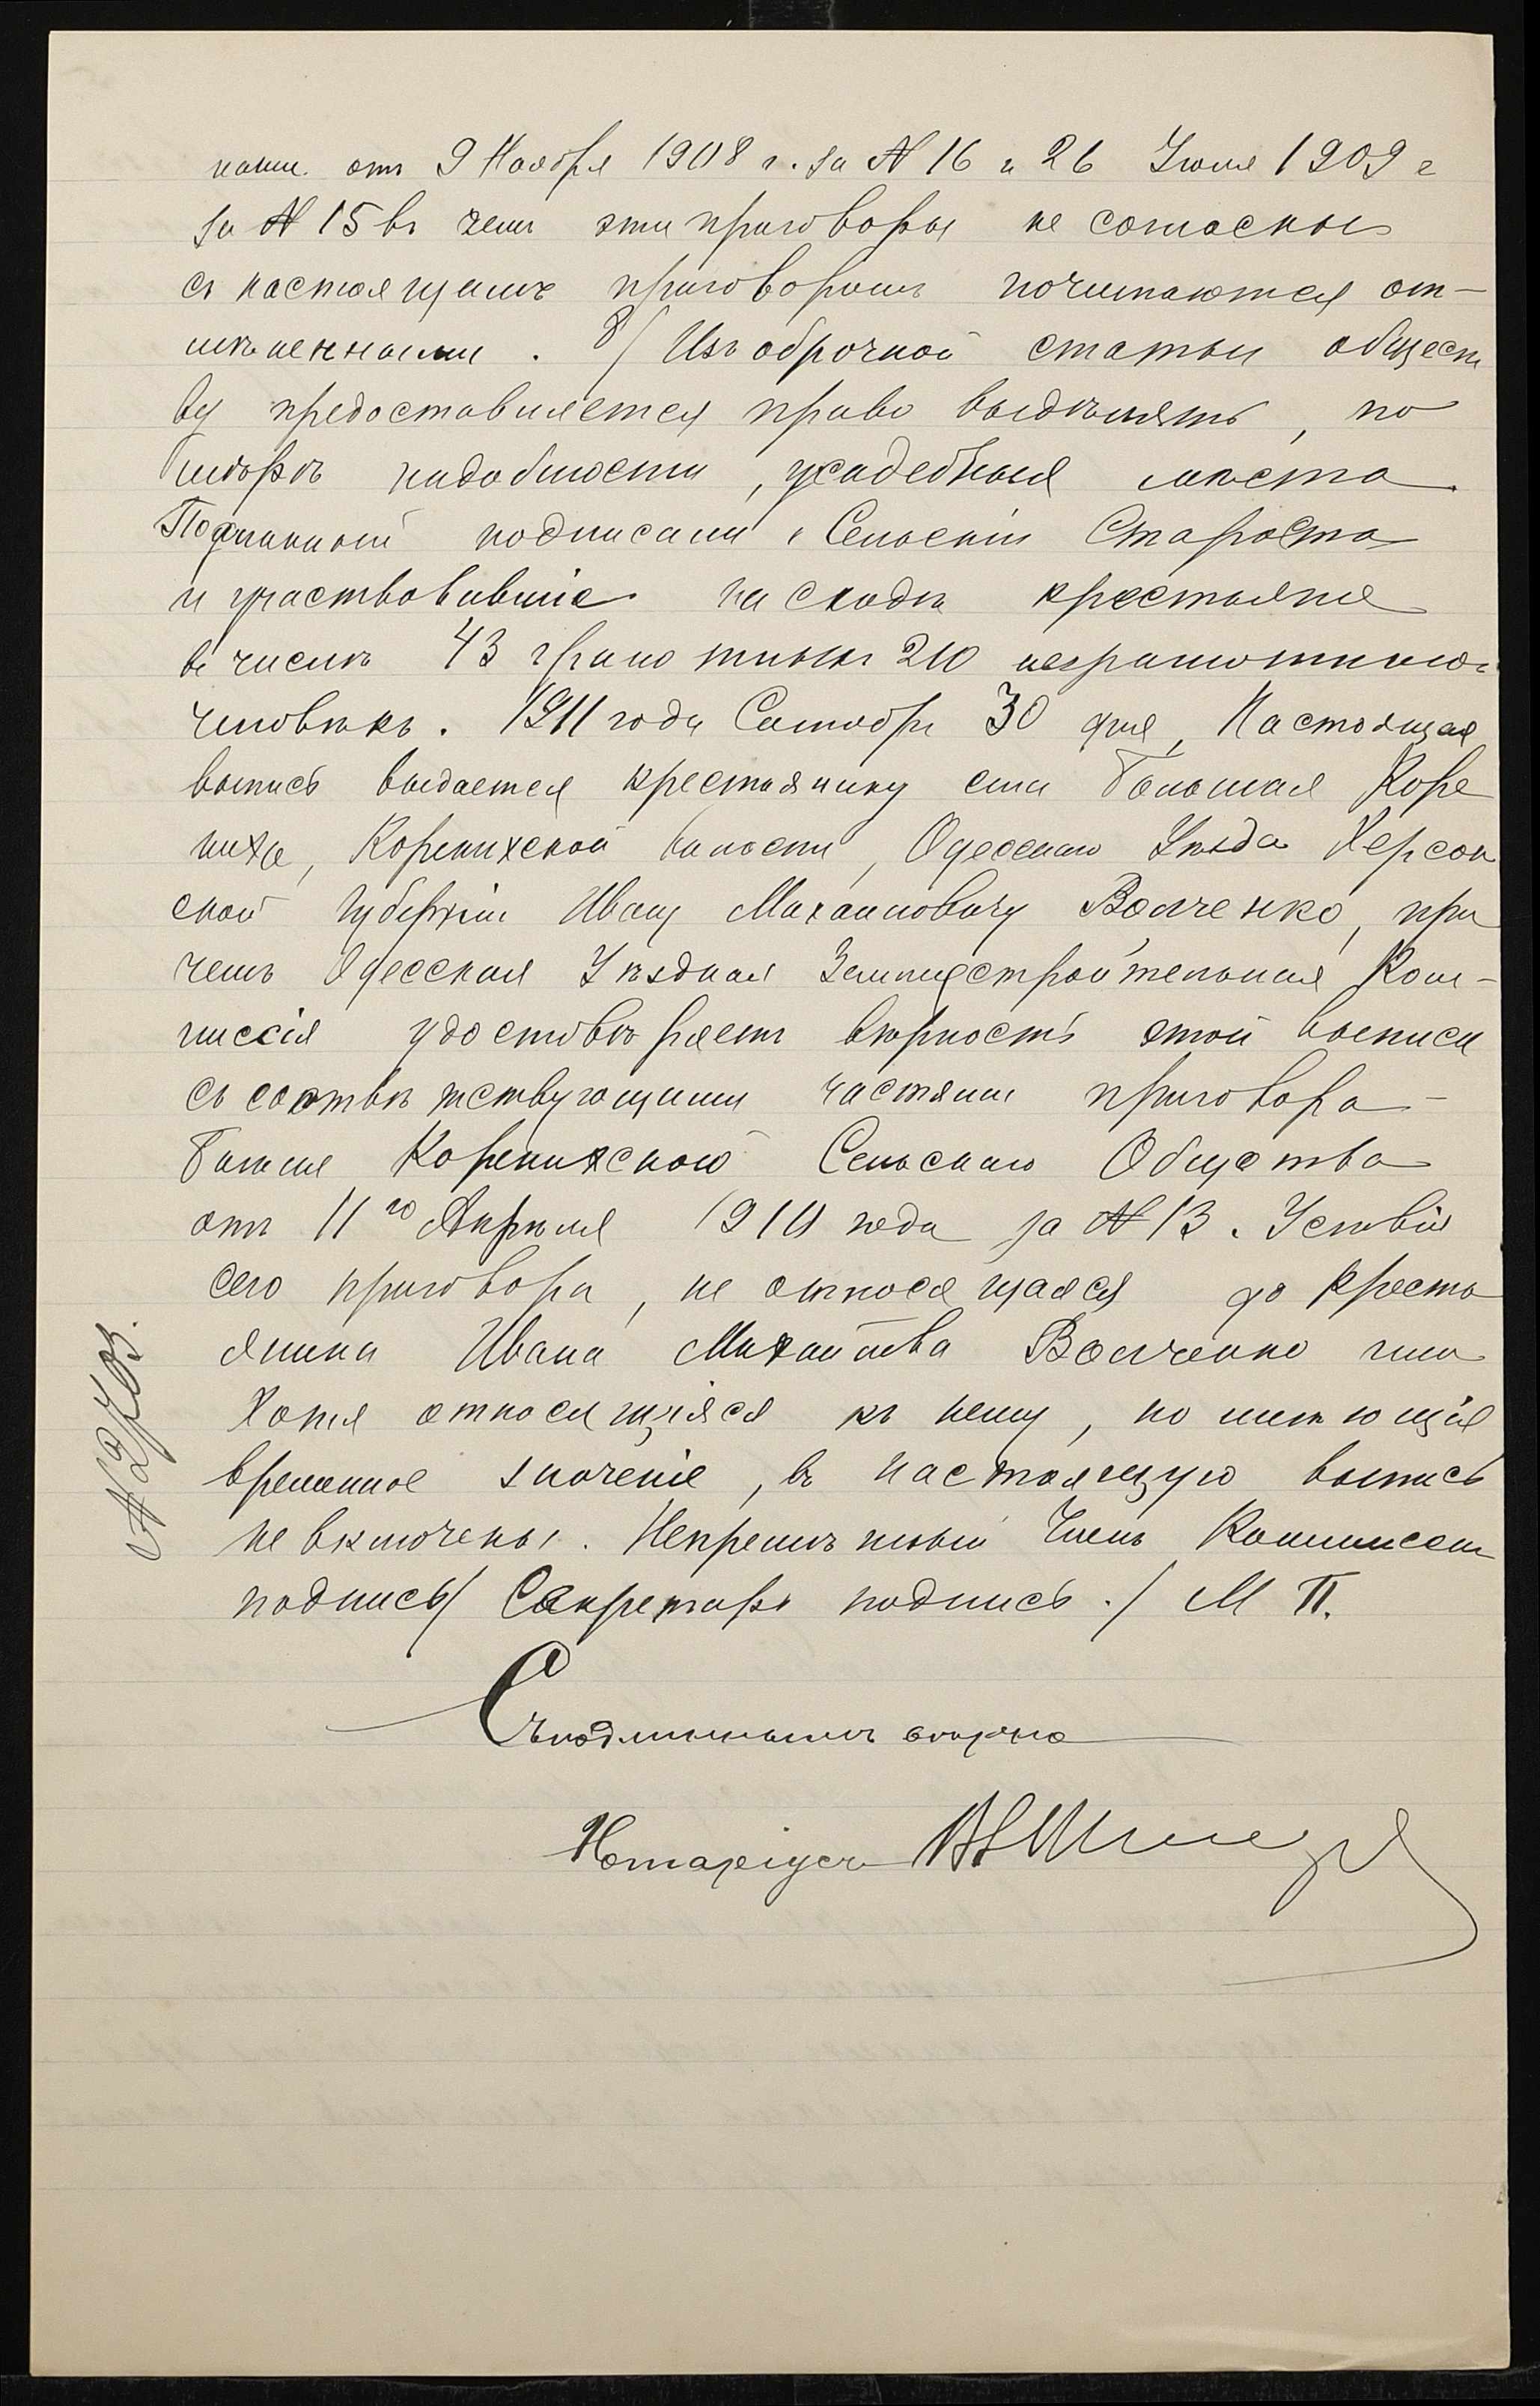 нами отъ 9 Ноября 1908 г. за № 16 и 26 Іюля 1909 г
за № 15 въ чемъ эти приговоры не согласны
съ настоящимъ приговоромъ почитаются от-
мѣненными. 8/ Изъ оброчной статьи общест
ву предоставляется право выдѣлять, по
мѣрѣ надобности, усадебныя мѣста.
Подлинный подписали Сельскій Староста
и участвовавшіе на сходѣ крестьяне
въ числѣ 43 грамотныхъ 210 неграмотныхъ
человѣкъ. 1911 года Сентября 30 дня, Настоящая
выпись выдается крестьянину села Большая Коре
ниха, Коренихской волости, Одесскаго Уѣзда Херсон
ской губерніи Ивану Михаиловичу Волченко, при
чемъ Одесская Уѣздная Землеустроительная Ком-
миссія удостовѣряетъ вѣрность этой выписи
съ соотвѣтствующими частями приговора
Больше Коренихскаго Сельскаго Общества
отъ 11го Апрѣля 1910 года за № 13. Условія
сего приговора, не относящаяся до кресть
янина Ивана Михайлова Волченко или
хотя относящіяся къ нему, но имѣющія
временное значеніе, въ настоящую выпись
не включены. Непремѣнный Членъ Коммиссіи
подпись/ Секретарь подпись./ М П.
Съ подлиннымъ вѣрно
Нотаріусъ